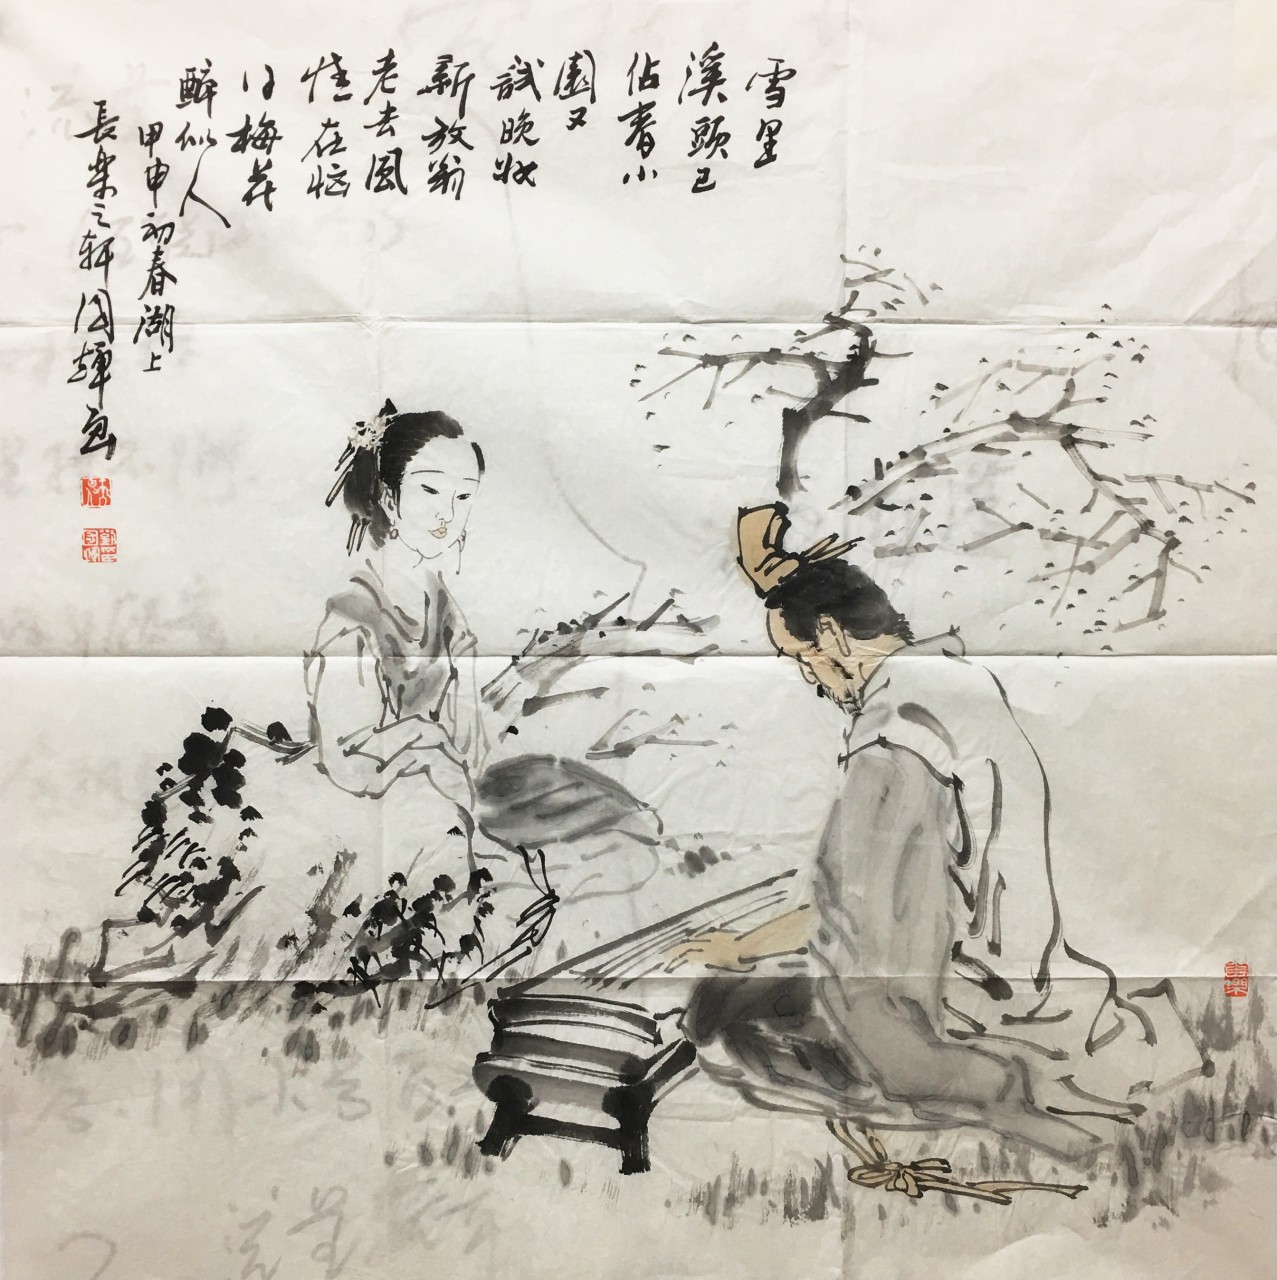 雪里
溪頭已
佔春小
園又
試晚妝
新放翁
老去風
情在恼
得梅花
醉似人
甲申初春湖上
長樂之軒国輝画